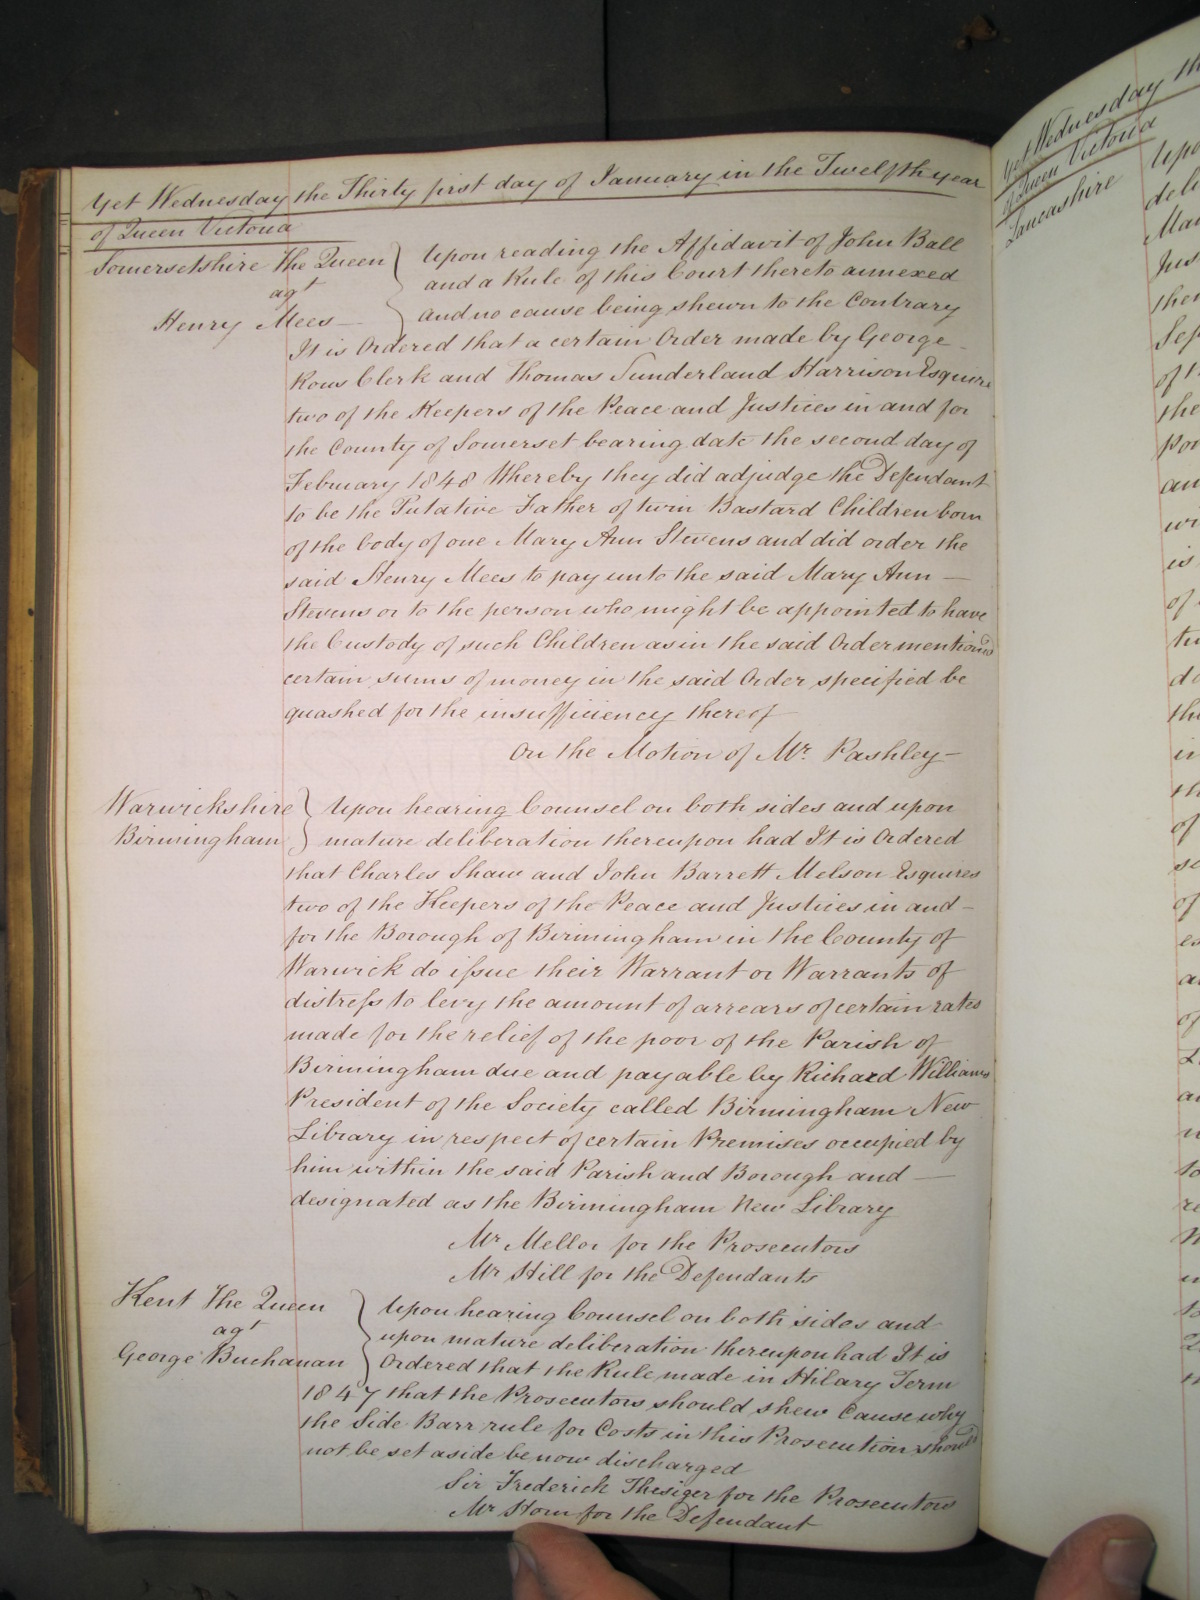 Yet Wednesday the Thirty first day of January in the Twelfth year
of Queen Victoria
Somersetshire The Queen
agt
Henry Mees
Upon reading the Affidavit of John Ball
and a Rule of this Court thereto annexed
and no cause being shewn to the Contrary
It is Ordered that a certain Order made by George
Rous Clerk and Thomas Sunderland Harrison Esquires
two of the Keepers of the Peace and Justices in and for
the County of Somerset bearing date the second day of
February 1848 Whereby they did adjudge the Defendant
to be the Putative Father of twin Bastard Children born
of the body of one Mary Ann Stevens and did order the
said Henry Mees to pay unto the said Mary Ann —
Stevens or to the person who might be appointed to have
the Custody of such Children as in the said Order mentioned
certain sums of money in the said Order specified be
quashed for the insufficiency thereof
On the Motion of Mr. Pashley —
Warwickshire
Birmingham
Upon hearing Counsel on both sides and upon
mature deliberation thereupon had It is Ordered
that Charles Shaw and John Barrett Melson Esquires
two of the Keepers of the Peace and Justices in and —
for the Borough of Birmingham in the County of
Warwick do issue their Warrant or Warrants of
distress to levy the amount of arrears of certain rates
made for the relief of the poor of the Parish of
Birmingham due and payable by Richard Williams
President of the Society called Birmingham New
Library in respect of certain Premises occupied by
him within the said Parish and Borough and —
designated as the Birmingham New Library
Mr Mellor for the Prosecutors
Mr Hill for the Defendants
Kent The Queen
agt
George Buchanan
Upon hearing Counsel on both sides and
upon mature deliberation thereupon had It is
Ordered that the Rule made in Hilary Term
1847 that the Prosecutors should shew Cause why
the Side Barr rule for Costs in this Prosecution should
not be set aside be now discharged
Sir Frederick Thesiger for the Prosecutors
Mr Horn for the Defendant
Yet Wednesday th
of Queen Victoria
Lancashire